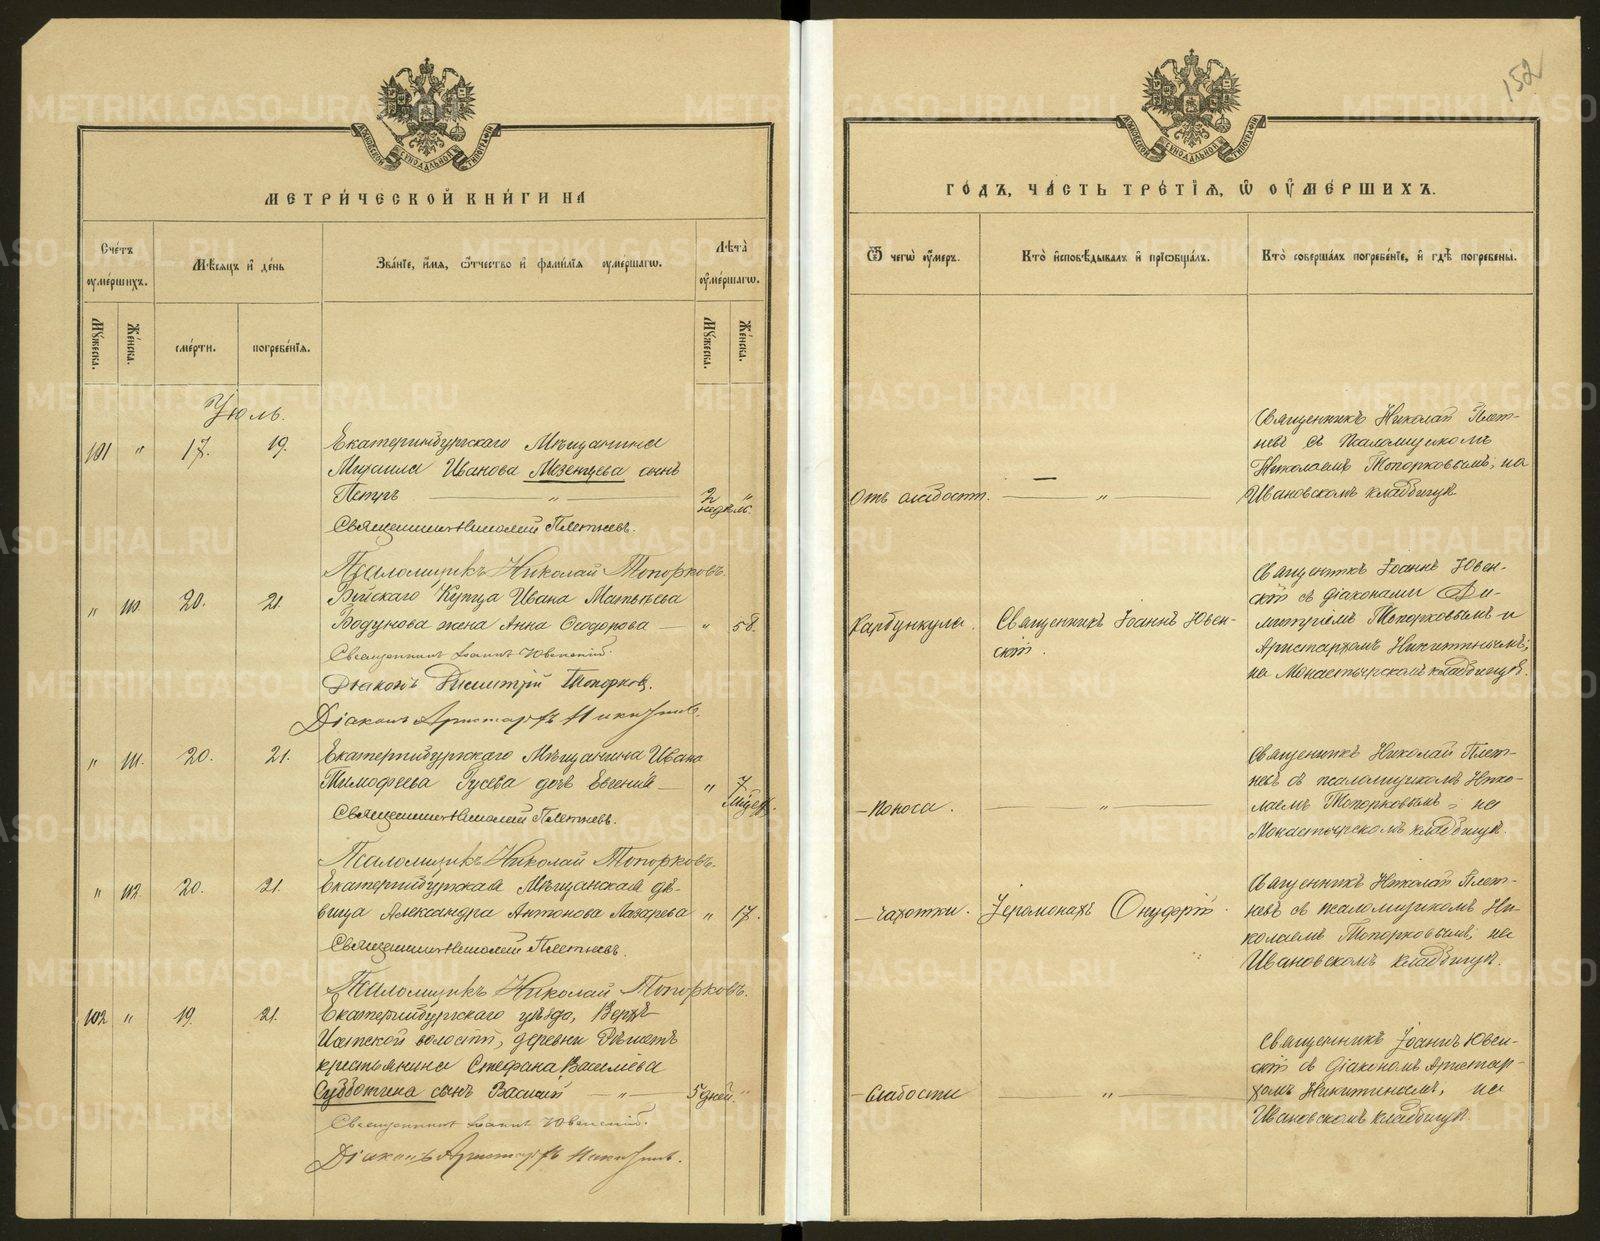 152
МЕТРИ́ЧЕСКОЙ КНИ́ГИ НА
Сче́тъ ᲂумершихъ.
Мѣсяцъ и҆ де́нь
Зва́нїе, и҆́мѧ, ѻ҆́тчество и҆ фами́лїѧ ᲂумершагѡ.
Лѣта̀ ᲂуме́ршагѡ.
Мꙋ́жеска.
Же́нска.
сме́рти.
погребе́нїѧ.
Мꙋ́жеска.
Же́нска.
Іюль.
101 " 17. 19. Екатеринбургскаго Мѣщанина
Михаила Иванова Мезенцева сынъ
Петръ — " — 2 недѣль. "
Священникъ Николай Плетневъ.
Псаломщикъ Николай Топорковъ.
" 110. 20. 21. Бійскаго Купца Ивана Матвѣева
Водунова жена Анна Ѳеодорова — " 58.
Священникъ Іоаннъ Ювенскій.
Діаконъ Димитрій Топорковъ.
Діаконъ Аристархъ Никитинъ.
" 111. 20. 21. Екатеринбургскаго Мѣщанина Ивана
Тимофеева Гусева дочь Евгенія — " 7 мѣсяц.
Священникъ Николай Плетневъ.
Псаломщикъ Николай Топорковъ.
" 112 20. 21. Екатеринбургская Мѣщанская дѣ-
вица Александра Антонова Лазарева " 17.
Священникъ Николай Плетневъ.
Псаломщикъ Николай Топорковъ.
102 " 19. 21. Екатеринбургскаго уѣзда, Верхъ-
Исетской волости, деревни Рѣшетъ
крестьянина Стефана Васильева
Субботина сынъ Василій — " — 5 дней. "
Священникъ Іоаннъ Ювенскій.
Діаконъ Аристархъ Никитинъ.
ГО́ДЪ, ЧА́СТЬ ТРЕ́ТЇѦ, Ѡ ОУМЕ́РШИХЪ.
Ѿ чегѡ̀ ᲂу҆́меръ.
Кто̀ и҆сповѣ́дывалъ и҆ прїѡбща́лъ.
Кто̀ соверша́лъ погребе́нїе, и҆ гдѣ̀ погребены̀.
Священникъ Николай Плет-
невъ съ Псаломщикомъ
Николаемъ Топорковымъ; на
Отъ слабости. — " — Ивановскомъ кладбищѣ.
Священникъ Іоаннъ Ювен-
скій съ діаконами Ди-
Карбункула. Священникъ Іоаннъ Ювен- митріемъ Топорковымъ и
скій. Аристархомъ Никитинымъ;
на Монастырскомъ кладбищѣ.
Священникъ Николай Плет-
невъ съ псаломщикомъ Нико-
— Поноса. — " — лаемъ Топорковымъ; на
Монастырскомъ кладбищѣ.
Священникъ Николай Плет-
— Чахотки. Іеромонахъ Онуфрій. невъ съ псаломщикомъ Ни-
колаемъ Топорковымъ; на
Ивановскомъ кладбищѣ.
Священникъ Іоаннъ Ювен-
скій съ діакономъ Аристар-
— Слабости — " — хомъ Никитинымъ, на
Ивановскомъ кладбищѣ.
METRIKI.GASO-URAL.RU